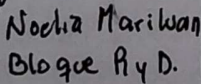 Noelia Mariwan
Bloque R y D.